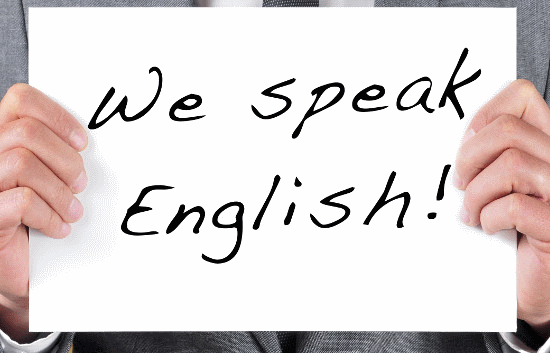 We speak
English!